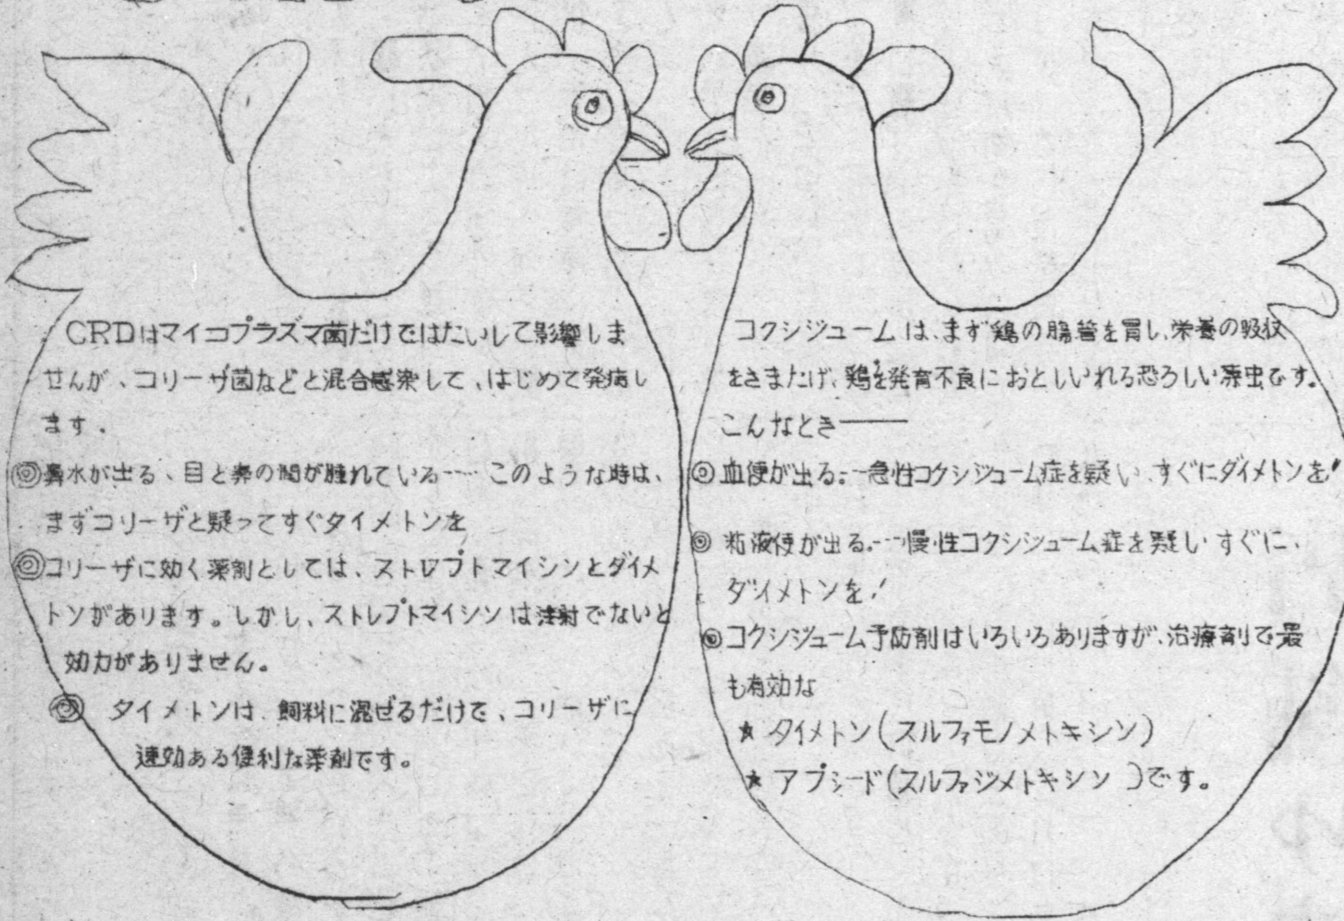 CRDはマイコプラズマ菌だけではたいして影響しま
せんが、コリーザ菌などと混合感染して、はじめて発病し
ます.
◎鼻水が出る、目と鼻の間が腫れている……このような時は、
まずコリーザと疑ってすぐタイメトンを
◎コリーザに効く薬剤としては、ストレプトマイシンとダイメ
トンがあります。しかし、ストレプトマイシンは注射でないと
効力がありません。
◎ タイメトンは、飼料に混ぜるだけで、コリーザに
速効ある便利な薬剤です。
コクシジュームは、まず鶏の腸管を冒し、栄養の吸収
をさまたげ、鶏を発育不良におとしいれる恐ろしい原虫です。
こんなとき――
◎血便が出る…急性コクシジューム症を疑い、すぐにダイメトンを!
◎粘液便が出る…慢性コクシジューム症を疑い すぐに、
ダイメトンを!
◎コクシジューム予防剤はいろいろありますが、治療剤で最
も有効な
★ タイメトン(スルファモノメトキシン)
★ アプシード(スルファジメトキシン)です。